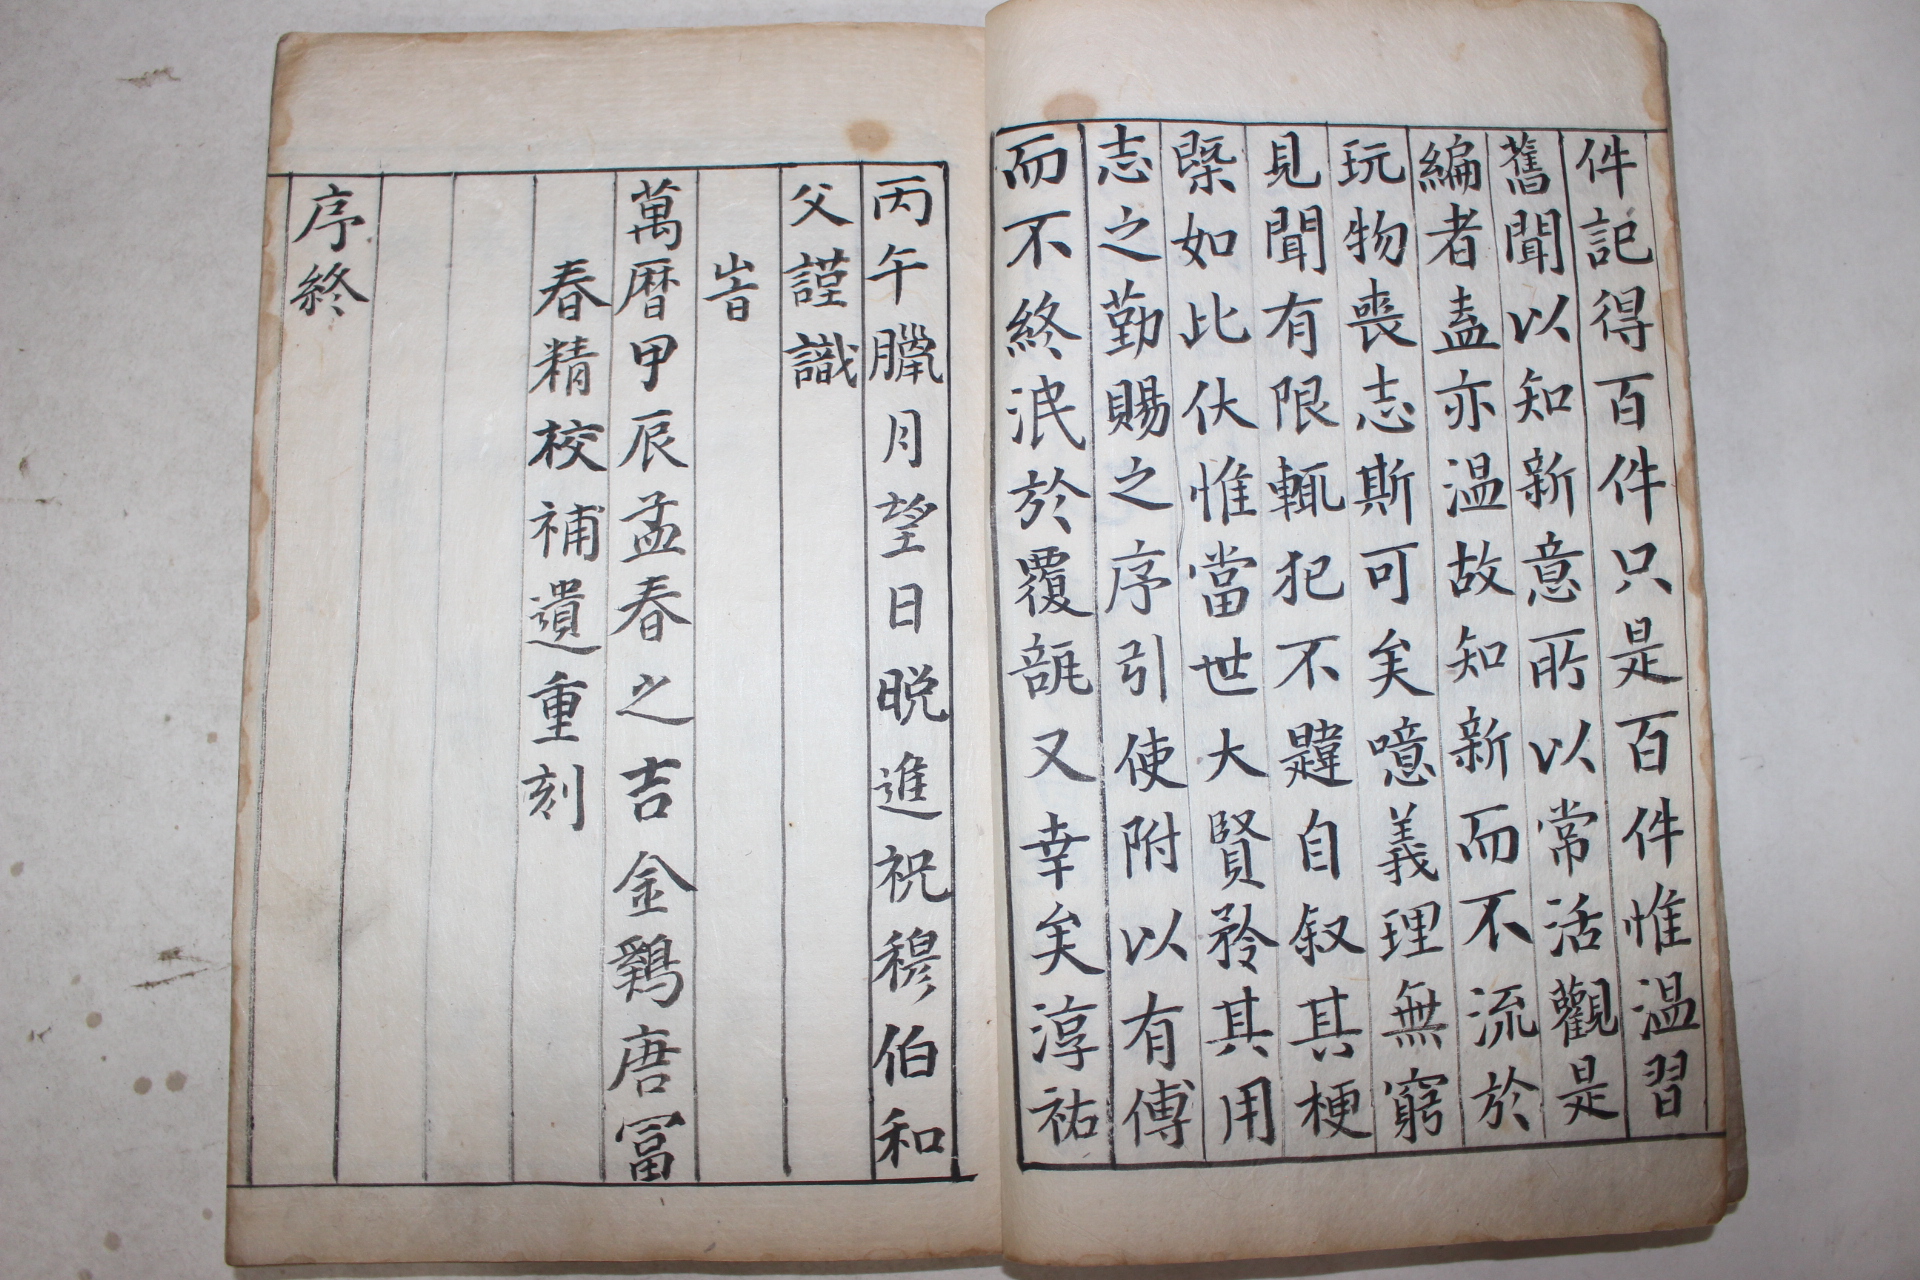 件記得百件只是百件惟温習
舊聞以知新意所以常活觀是
編者盍亦温故知新而不流於
玩物喪志斯可矣噫義理無窮
見聞有限輒犯不韙自叙其梗
槩如此伏惟當世大賢矜其用
志之勤賜之序引使附以有傳
而不終泯於覆瓿又幸矣淳祐
丙午臘月望日晩進祝穆伯和
父謹識
旹
萬曆甲辰孟春之吉金鷄唐冨
春精校補遺重刻
序終